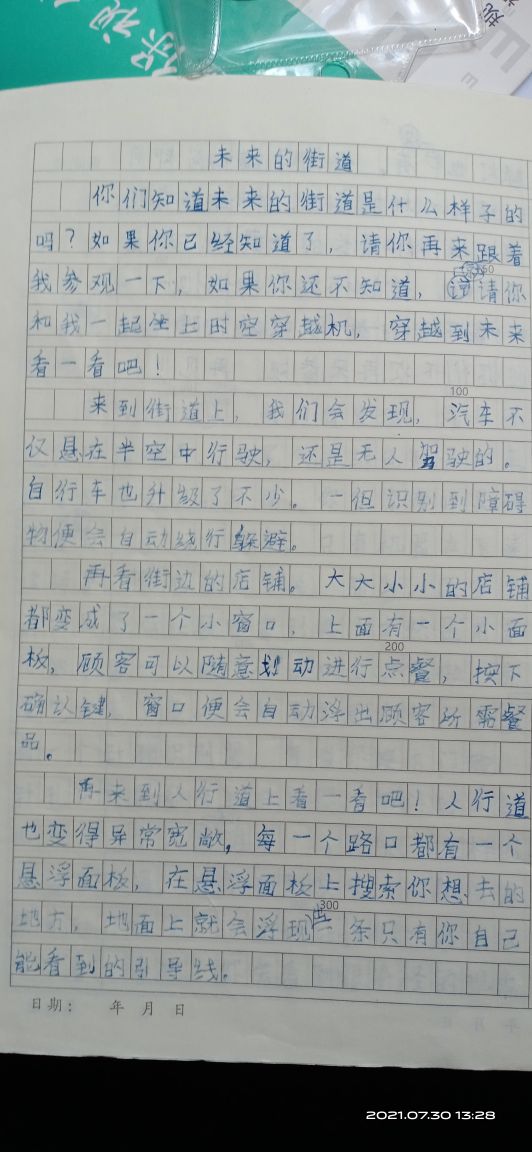 未来的街道
你们知道未来的街道是什么样子的
吗？如果你已经知道了，请你再来跟着
我参观一下，如果你还不知道，请你
和我一起坐上时空穿越机，穿越到未来
看一看吧！
100
来到街道上，我们会发现，汽车不
仅悬在半空中行驶，还是无人驾驶的。
自行车也升级了不少。一但识别到障碍
物便会自动绕行躲避。
再看街边的店铺。大大小小的店铺
都变成了一个小窗口，上面有一个小面
200
板，顾客可以随意划动进行点餐，按下
确认键，窗口便会自动浮出顾客所需餐
品。
再来到人行道上看一看吧！人行道
也变得异常宽敞，每一个路口都有一个
悬浮面板，在悬浮面板上搜索你想去的
300
地方，地面上就会浮现出一条只有你自己
能看到的引导线。
日期： 年 月 日
2021.07.30 13:28